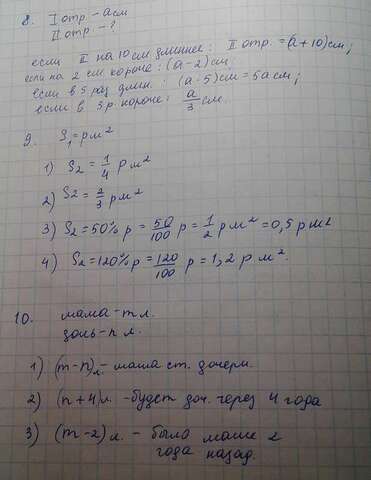 8. I отр. - а см
II отр - ?
если II на 10 см длиннее: II отр. = (а + 10) см;
если на 2 см короче: (а - 2) см;
если в 5 раз длин. : (а · 5) см = 5а см;
если в 3 р. короче: а/3 см.
9. S₁ = р м²
1) S₂ = 1/4 р м²
2) S2 = 2/3 р м²
3) S₂ = 50% р = 50/100 р = 1/2 р м² = 0,5 р м2
4) S₂ = 120% р = 120/100 р = 1,2 р м².
10. мама - m л.
дочь - n л.
1) (m - n) л - мама ст. дочери.
2) (n + 4) л. - будет доч. через 4 года
3) (m - 2) л. - было маме 2
года назад.